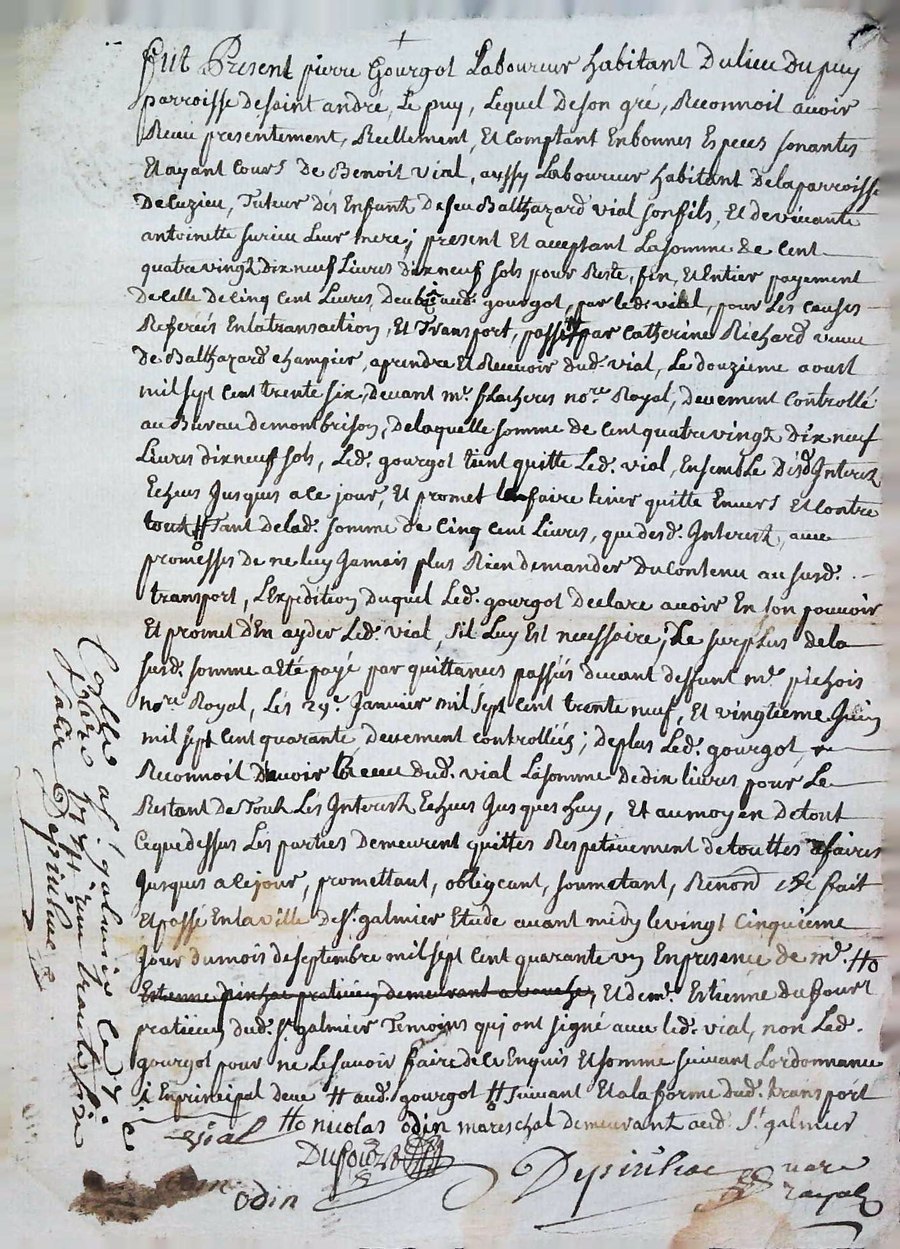 Fut Present pierre Gourgot Laboureur habitant Dulieu Du puy
parroisse de saint andré, Le puy, Lequel de son gré, Reconnoit avoir
Receu presentement, Reellement, Et Comptant En bonnes Especes sonantes
Et ayant Cours de Benoit vial, aussy Laboureur habitant de la parroisse
De Cuzieu, Tuteur dés Enfantz de feu Balthazard vial son fils, Et de vivante
antoinette surieu Leur mere; present Et acceptant La somme de Cent
quatre vingtz dix neuf Livres dix neuf sols pour Reste, fin, Et Entier payement
de celle de Cinq Cent Livres, deub aud. gourgot, par led. vial, pour Les Causes
Referéés En la transaction, Et Transport, passé par Catherine Richard veuve
de Balthazard champier, aprendre Et Recevoir dud. vial, Le douzieme aoust
mil sept cent trente six, devant me. flacheres nore. Royal, devement controllé
au Bureau de montbrison, de laquelle somme de Cent quatre vingtz dix neuf
Livres dix neuf sols, Led. gourgot tient quitte Led. vial, Ensemble désd. Interestz
Echeus Jusques a ce jour, Et promet L'en faire tenir quitte Envers Et contre
toutz H Tant de lad. somme de Cinq cent Livres, que desd. Interestz, avec
promesses de ne luy Jamais plus Rien demander du Contenu au susd.
transport, L'Expedition duquel Led. gourgot declare avoir En son pouvoir
Et promet d'En ayder Led. vial, s'il Luy Est necessaire; Le surplus de la
susd. somme a eté payé par quittances passéés devant deffunt me. pichois
nore Royal, Lés 29e. Janvier mil sept cent trente neuf, Et vingtieme Juin
mil sept cent quarante devement controlléés; de plus Led. gourgot,
Reconnoit d'avoir Receu dud. vial La somme de dix livres pour Le
Restant de Toutz Les Interestz Echeus Jusques huy, Et au moyen de tout
Ce que dessus Lés parties demeurent quittes Respetivement de touttes afaires
Jusques a ce jour, promettant, obligeant, soumetant, Renond &c fait
Et passé En la ville de st. galmier Etude avant midy le vingt Cinquieme
Jour du mois de septembre mil sept cent quarante un En presence de me. Ho
Estienne pinhac praticien demeurant a, Et de me. Estienne duffourt
praticien dud. st. galmier Temoins qui ont signé avec led. vial, non Led.
gourgot pour ne Le savoir faire de ce Enquis Et sommé suivant L'ordonnance
i En principal deue H aud. gourgot H suivant Et a la forme dud. transport
Ho nicolas odin mareschal demeurant aud. St. galmier
vial
Dufourt
odin
Depinhac nore
royal
Collé a st galmier Le
Depinhac